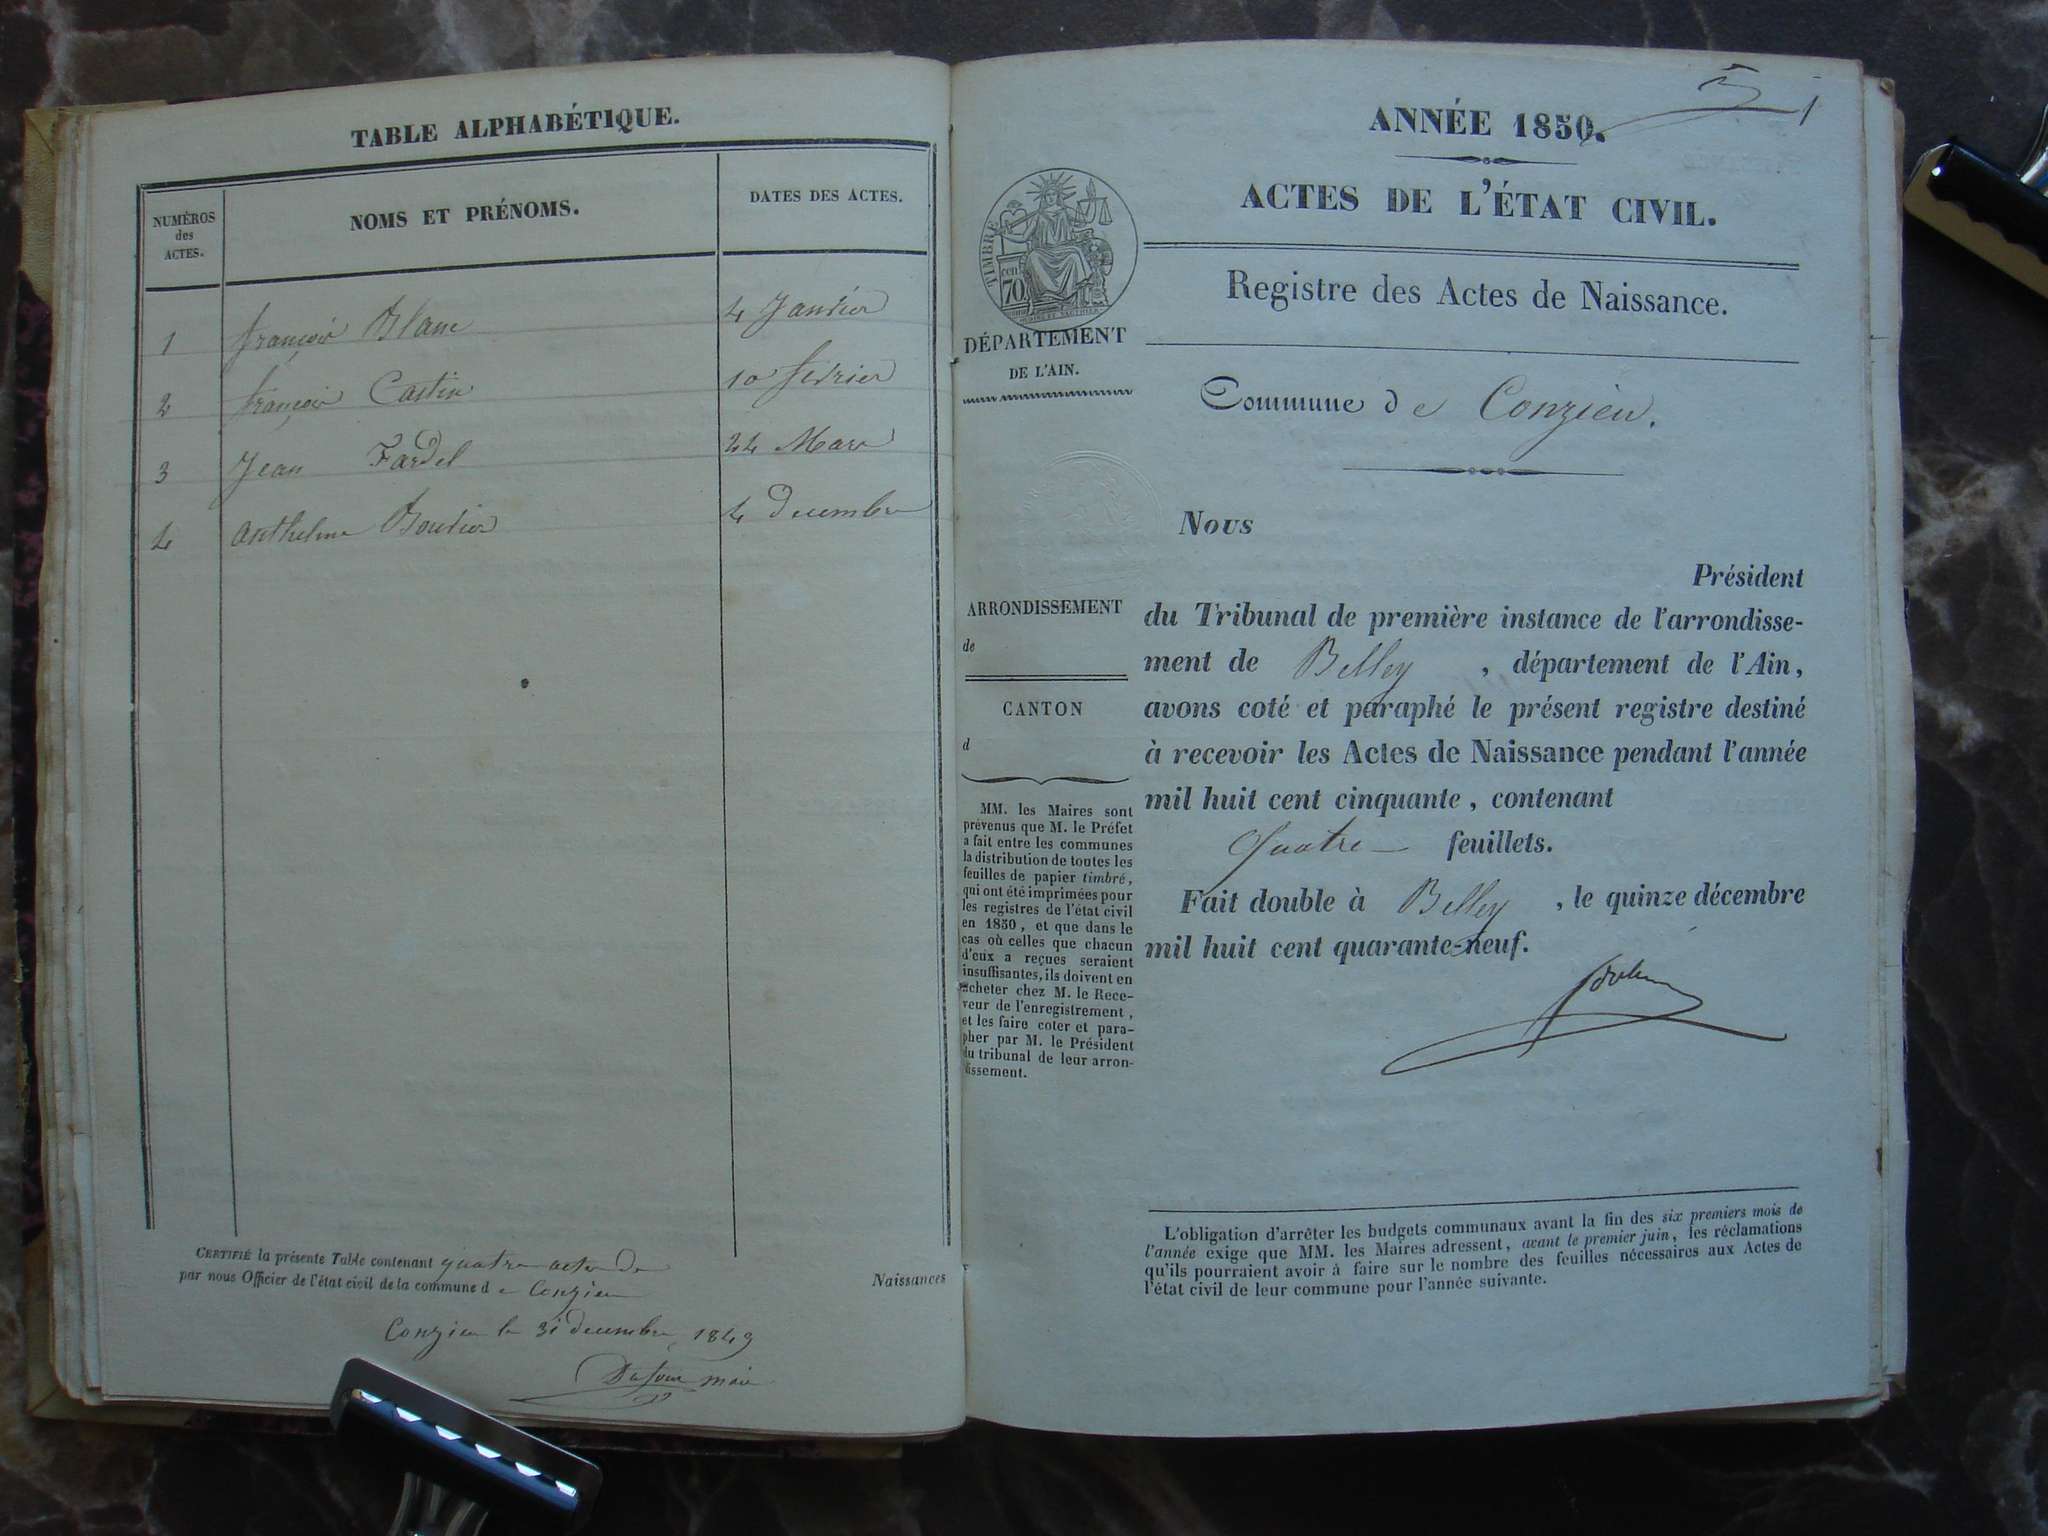 TABLE ALPHABÉTIQUE.
NUMÉROS
des
ACTES.
NOMS ET PRÉNOMS.
DATES DES ACTES.
1 françois Blanc 4 Janvier
2 françois Castin 10 fevrier
3 Jean Fardel 24 Mars
4 Anthelme Bouvier 4 decembre
CERTIFIÉ la présente Table contenant quatre actes de Naissances
par nous Officier de l'état civil de la commune de Conzieu
Conzieu le 31 decembre 1849
maire
1
ANNÉE 1850.
ACTES DE L'ÉTAT CIVIL.
Registre des Actes de Naissance.
TIMBRE
cen
70
DÉPARTEMENT
DE L'AIN.
Commune de Conzieu.
ARRONDISSEMENT
de
CANTON
d
MM. les Maires sont
prévenus que M. le Préfet
a fait entre les communes
la distribution de toutes les
feuilles de papier timbré,
qui ont été imprimées pour
les registres de l'état civil
en 1850, et que dans le
cas où celles que chacun
d'eux a reçues seraient
insuffisantes, ils doivent en
acheter chez M. le Rece-
veur de l'enregistrement,
et les faire coter et para-
pher par M. le Président
du tribunal de leur arron-
dissement.
Nous
Président
du Tribunal de première instance de l'arrondisse-
ment de Belley, département de l'Ain,
avons coté et paraphé le présent registre destiné
à recevoir les Actes de Naissance pendant l'année
mil huit cent cinquante, contenant
Quatre feuillets.
Fait double à Belley, le quinze décembre
mil huit cent quarante-neuf.
L'obligation d'arrêter les budgets communaux avant la fin des six premiers mois de
l'année exige que MM. les Maires adressent, avant le premier juin, les réclamations
qu'ils pourraient avoir à faire sur le nombre des feuilles nécessaires aux Actes de
l'état civil de leur commune pour l'année suivante.